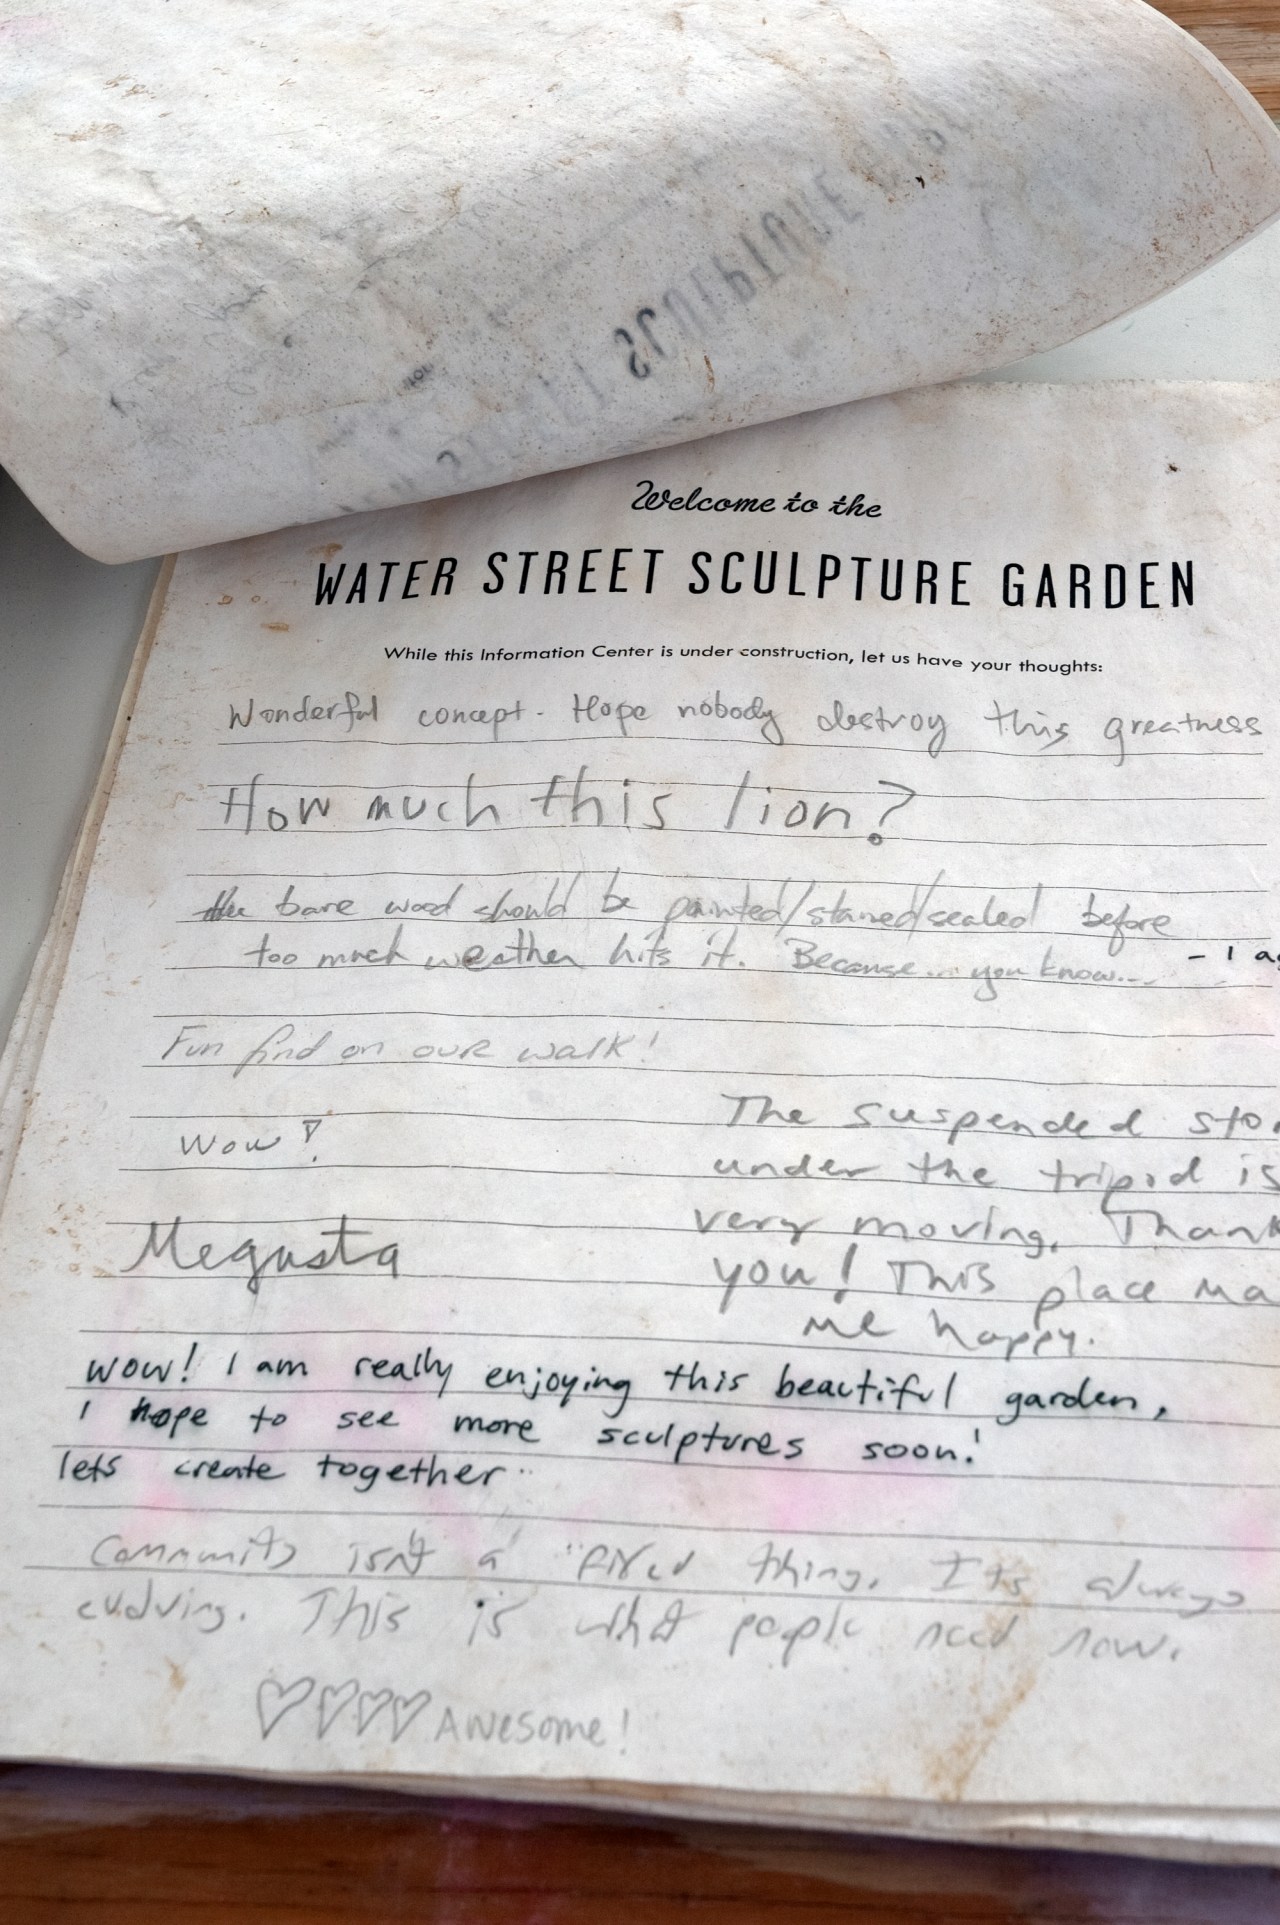 Welcome to the
WATER STREET SCULPTURE GARDEN
While this Information Center is under construction, let us have your thoughts:
Wonderful concept. Hope nobody destroy this greatness
How much this lion?
the bare wood should be painted/stained/sealed before
too much weather hits it. Because... you know... - I
Fun find on our walk!
Wow!
The suspended
under the tripod is
very moving. Thank
you! This place
me happy.
Megusta
wow! I am really enjoying this beautiful garden,
I hope to see more sculptures soon!
lets create together
Community isn't a "fixed thing. Its always
evolving. This is what people need now.
♡♡♡♡ Awesome!
SCULPTURE